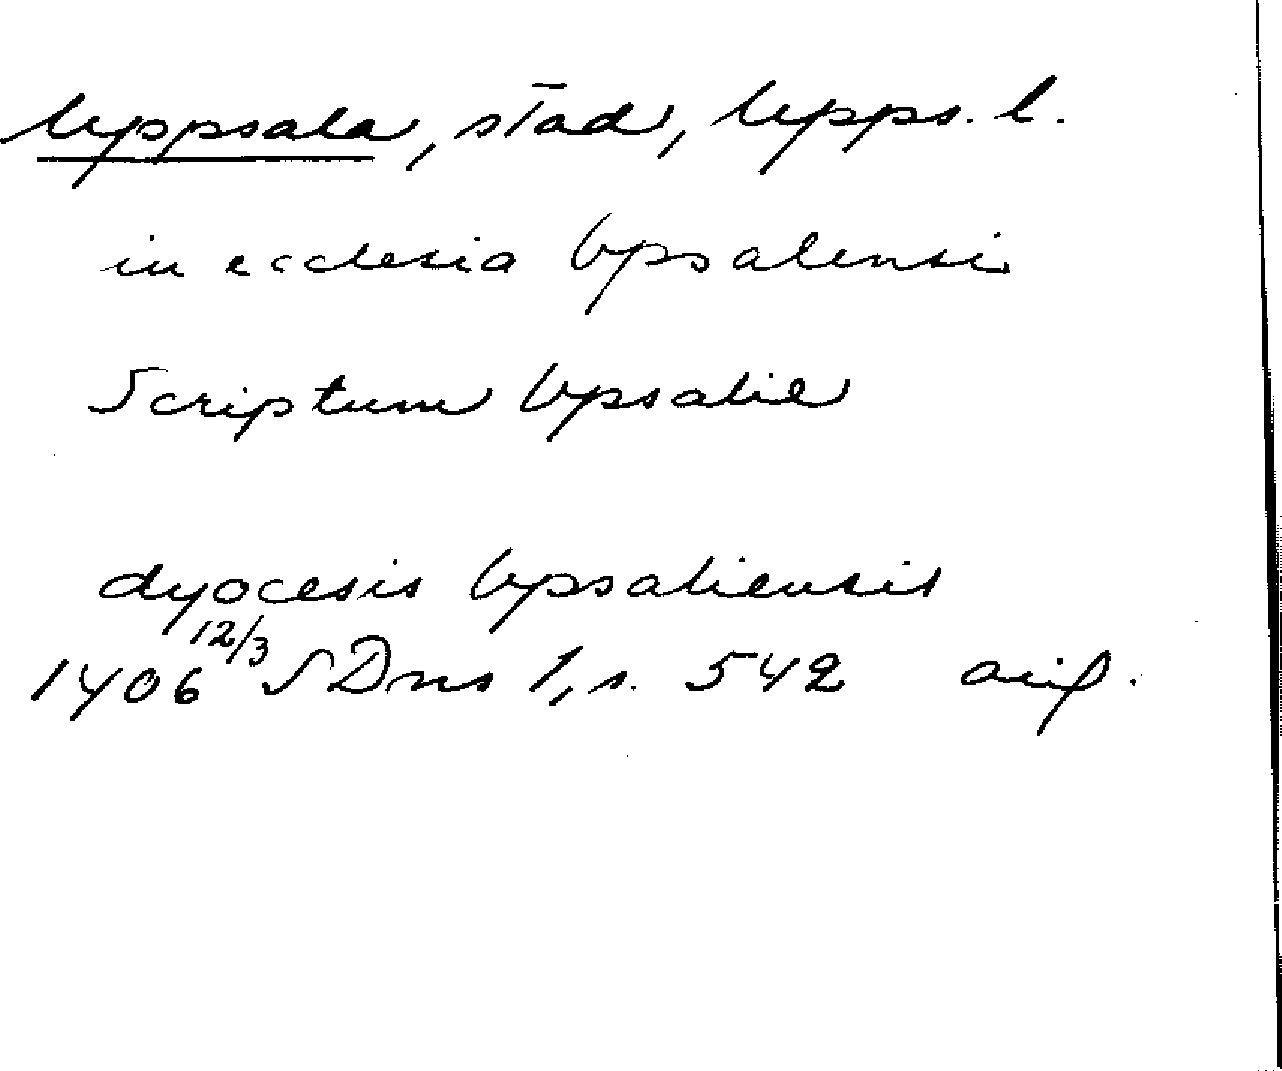 Uppsala, stad, Upps. l.
in ecclesia Vpsalensi
Scriptum Vpsalie
dyocesis Vpsaliensis
1406 12/3 SDns 1, s. 542 avf.